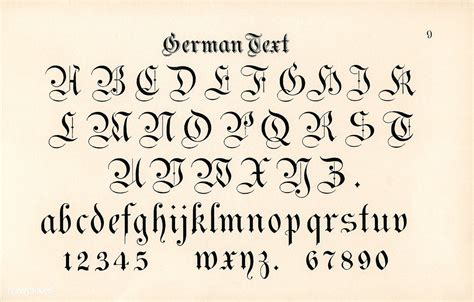 German Text
9
A B C D E F G H I K
L M N O P Q R S T
U V W X Y Z .
abcdefghijklmnopqrstuv
12345 wxyz. 67890